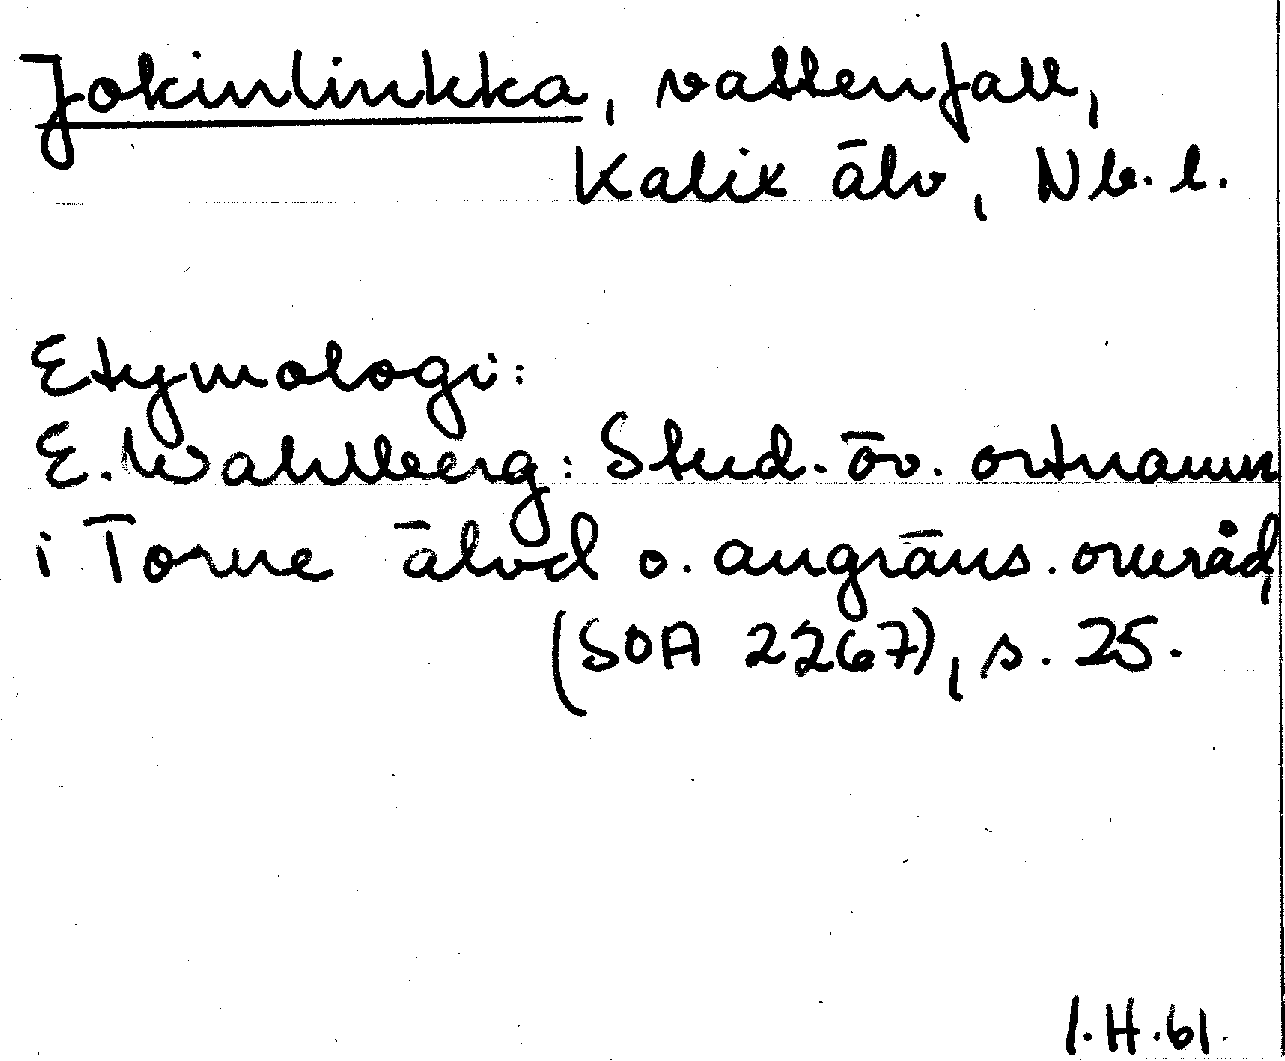 Jokinlinkka, vattenfall,
Kalix älv, Nb. l.
Etymologi:
E. Wahlberg: Stud. öv. ortnamn
i Torne älvd o. angräns. områd,
(SOA 2267), s. 25.
I.H.61.